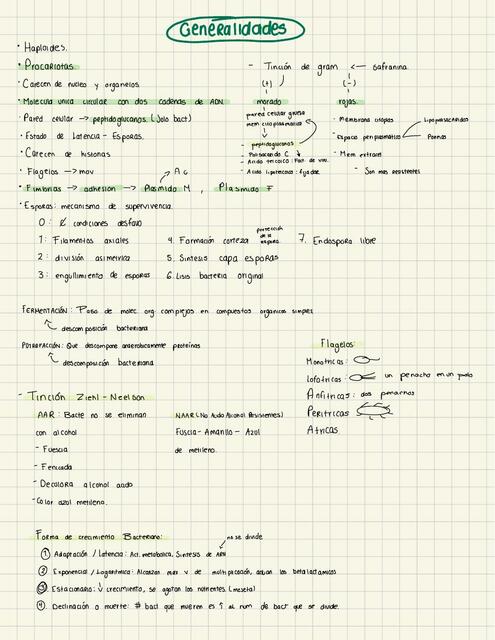 Generalidades
· Haploides.
· Procariotas.
· Carecen de nucleo y organelos.
· Molecula unica circular con dos cadenas de ADN.
· Pared celular → peptidoglucanos. (Solo bact)
· Estado de Latencia - Esporas.
· Carecen de histonas
· Flagelos → mov
· Fimbrias → adhesión → Plasmido M, Plasmido F
· Esporas: mecanismo de supervivencia.
0: condiciones desfavo
1: Filamentos axiales
2: división asimetrica
3: engullimiento de esporas
4. Formación corteza
protección de la espora
5. Sintesis capa esporas
6. Lisis bacteria original
7. Endospora libre
- Tinción de gram ← Safranina.
(+)
morado
pared celular gruesa
mem citoplasmatica
- peptidoglucanos
- Polisacarido C.
- Acido teicoico: Fact. de viru.
- Acido lipoteicoico: fijador
(-)
rojas
- Membrana citoplas
- Espacio periplasmatico
Lipopolisacaridos
Porinas
- Mem externa
- Son mas resistentes
FERMENTACIÓN: Paso de molec. org complejos en compuestos organicos simples
descomposición bacteriana
PUTREFACCIÓN: Que descompone anaerobicamente proteinas
descomposición bacteriana
Flagelos:
Monotricas:
Lofotricas: un penacho en un polo
Anfitricas: dos penachos
Peritricas
Atricas.
- Tinción Ziehl-Neelson
AAR: Bacte no se eliminan
con alcohol
- Fuscia
- Fenicada
- Decolora alcohol acido
- Color azul metileno.
NAAR (No Acido Alcohol Resistentes)
Fuscia - Amarillo - Azul
de metileno.
Forma de crecimiento Bacteriano:
no se divide
① Adaptación / Latencia: Act. metabolica, Sintesis de ARN
② Exponencial / Logaritmica: Alcanzan max v de multiplicación, actuan los betalactamicos
③ Estacionario: ↓ crecimiento, se agotan los nutrientes (meseta)
④ Declinación o muerte: # bact que mueren es ↑ al num de bact que se divide.